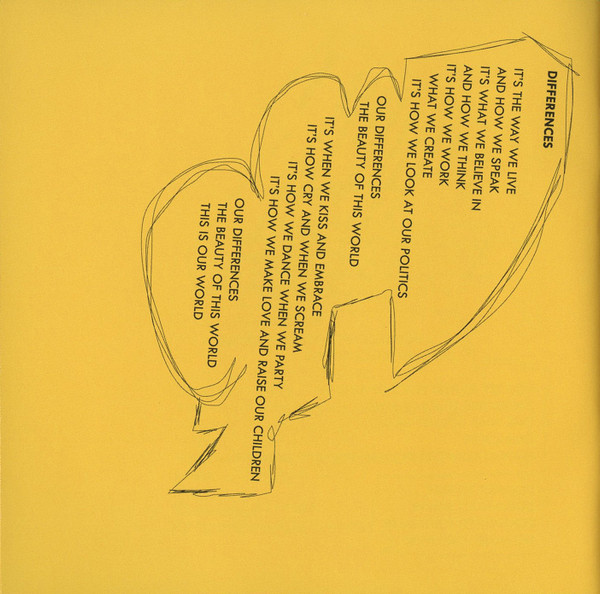 DIFFERENCES
IT'S THE WAY WE LIVE
AND HOW WE SPEAK
IT'S WHAT WE BELIEVE IN
AND HOW WE THINK
IT'S HOW WE WORK
WHAT WE CREATE
IT'S HOW WE LOOK AT OUR POLITICS
OUR DIFFERENCES
THE BEAUTY OF THIS WORLD
IT'S WHEN WE KISS AND EMBRACE
IT'S HOW CRY AND WHEN WE SCREAM
IT'S HOW WE DANCE WHEN WE PARTY
IT'S HOW WE MAKE LOVE AND RAISE OUR CHILDREN
OUR DIFFERENCES
THE BEAUTY OF THIS WORLD
THIS IS OUR WORLD